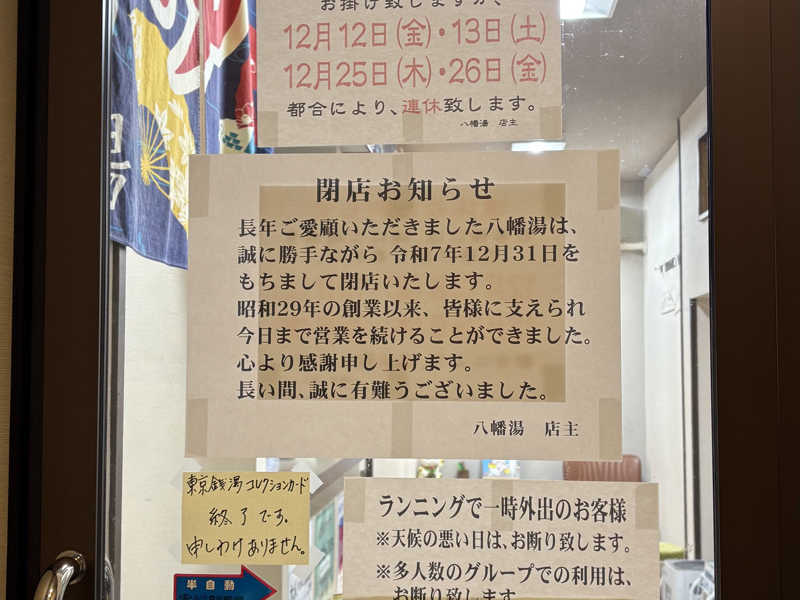 お掛け致しますが、
12月12日(金)・13日(土)
12月25日(木)・26日(金)
都合により、連休致します。
八幡湯 店主
閉店お知らせ
長年ご愛顧いただきました八幡湯は、
誠に勝手ながら 令和7年12月31日を
もちまして閉店いたします。
昭和29年の創業以来、皆様に支えられ
今日まで営業を続けることができました。
心より感謝申し上げます。
長い間、誠に有難うございました。
八幡湯 店主
東京銭湯コレクションカード
終了です。
申しわけありません。
ランニングで一時外出のお客様
※天候の悪い日は、お断り致します。
※多人数のグループでの利用は、
お断り致します
半自動